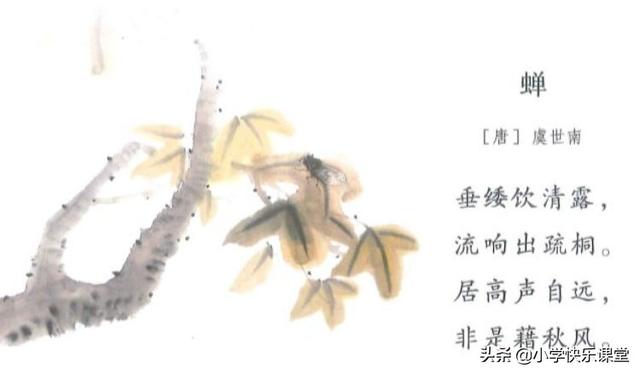 蝉
［唐］虞世南
垂緌饮清露，
流响出疏桐。
居高声自远，
非是藉秋风。
头条 @小学快乐课堂